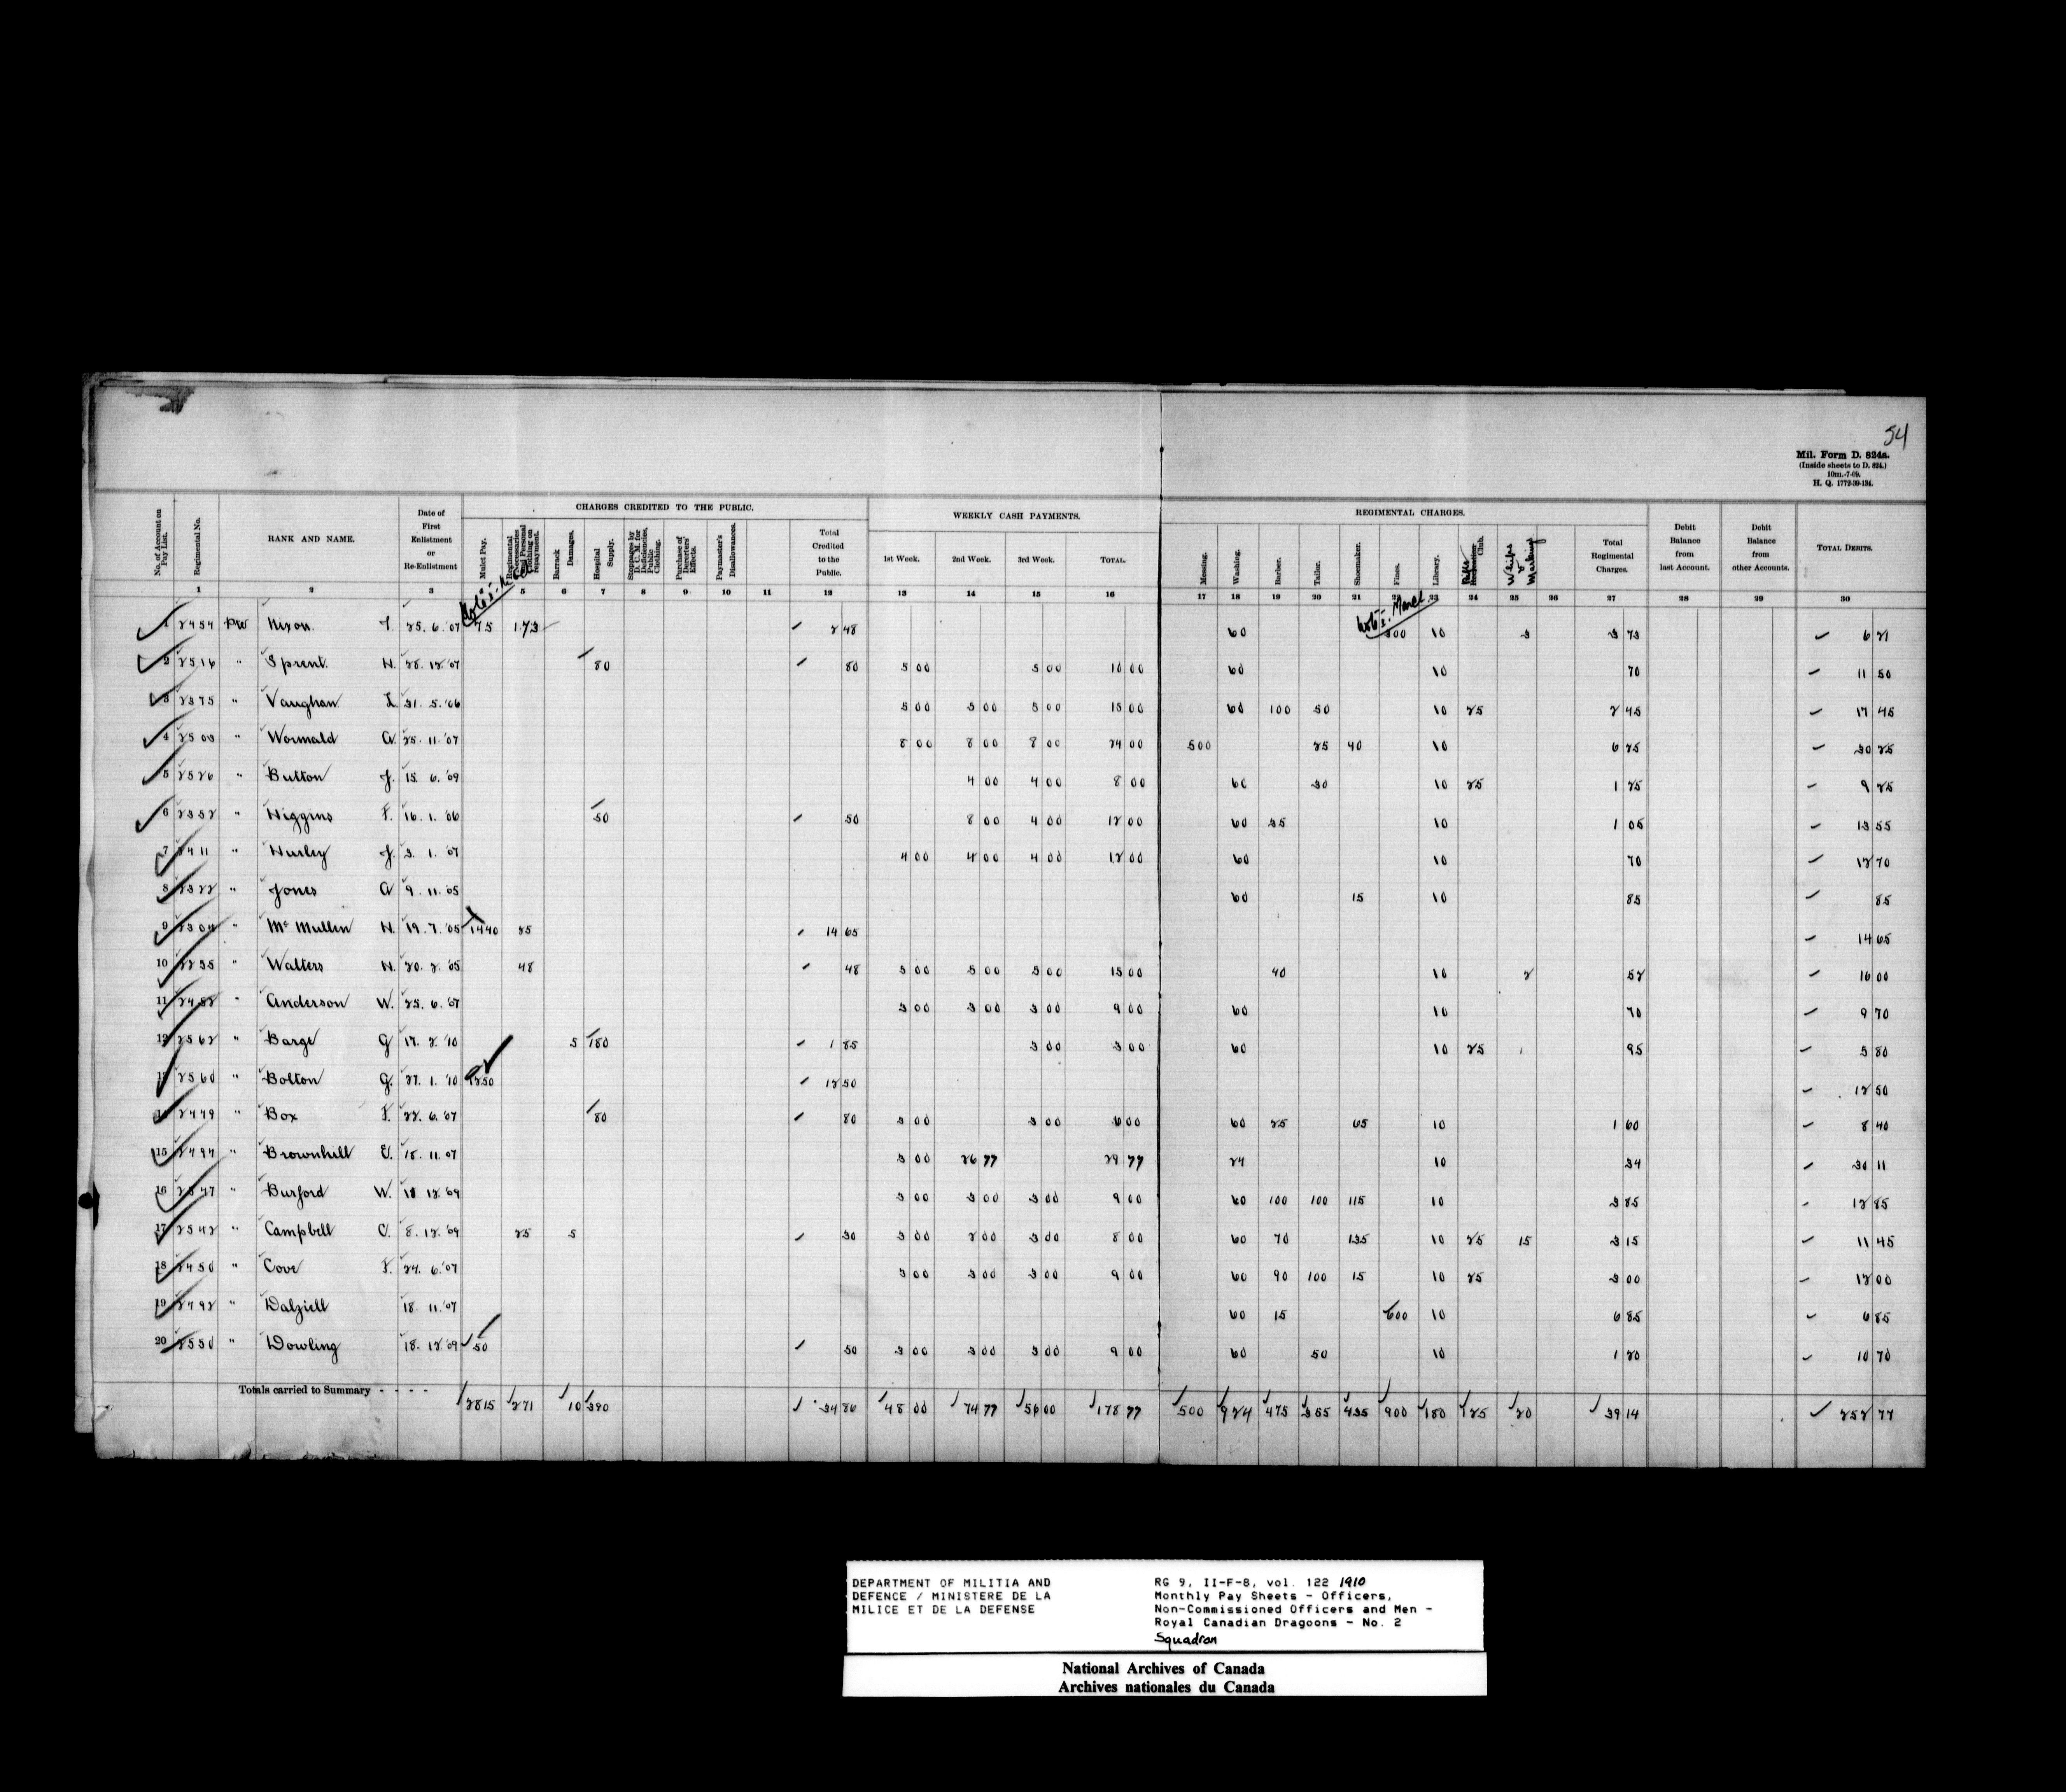 54
Mil. Form D. 824a.
(Inside sheets to D. 824.)
10m.-7-09.
H. Q. 1772-39-134.
No. of Account on Pay List. Regimental No. RANK AND NAME. Date of First Enlistment or Re-Enlistment CHARGES CREDITED TO THE PUBLIC. WEEKLY CASH PAYMENTS. REGIMENTAL CHARGES. Debit Balance from last Account. Debit Balance from other Accounts. TOTAL DEBITS.
Mulct Pay. Regimental Necessaries and Personal Clothing on repayment. Barrack Damages. Hospital Supply. Stoppages by D. C. M. for Deficiencies, Public Clothing. Purchase of Deserters' Effects. Paymaster's Disallowances. Total Credited to the Public. 1st Week. 2nd Week. 3rd Week. TOTAL. Messing. Washing. Barber. Tailor. Shoemaker. Fines. Library. Club. Marking Total Regimental Charges.
1 2 3 5 6 7 8 9 10 11 12 13 14 15 16 17 18 19 20 21 22 23 24 25 26 27 28 29 30
1 2454 Nixon 25. 6. '07 75 1.73 2 48 60 300 10 3 3 73 6 21
2 2516 " Sprent N. 28. 12 '07 80 80 5 00 5 00 10 00 60 10 70 11 50
3 2375 " Vaughan L 31. 5. '06 5 00 5 00 5 00 15 00 60 100 50 10 25 2 45 17 45
4 2503 " Wormald A. 25. 11. '07 8 00 8 00 8 00 24 00 500 25 40 10 6 25 30 25
5 2526 " Button J. 15. 6. '09 4 00 4 00 8 00 60 30 10 25 1 25 9 25
6 2352 " Higgins F. 16. 1. '06 50 50 8 00 4 00 12 00 60 35 10 1 05 13 55
7 2411 " Hurley J. 3. 1. '07 4 00 4 00 4 00 12 00 60 10 70 12 70
8 2322 " Jones A 9. 11. '05 60 15 10 85 85
9 2304 " McMullin H. 19. 7. '05 1440 25 14 65 14 65
10 2235 " Walters H. 20. 2. '05 48 48 5 00 5 00 5 00 15 00 40 10 2 52 16 00
11 2452 " Anderson W. 25. 6. '07 3 00 3 00 3 00 9 00 60 10 70 9 70
12 2562 " Barge G 17. 2. '10 5 180 1 85 3 00 3 00 60 10 25 95 5 80
13 2560 " Bolton G. 27. 1. '10 1250 12 50 12 50
14 2449 " Box F. 22. 6. '07 80 80 3 00 3 00 6 00 60 25 65 10 1 60 8 40
15 2494 " Brownhill E. 18. 11. 07 3 00 26 77 29 77 24 10 34 30 11
16 2547 " Burford W. 18 12. '09 3 00 3 00 3 00 9 00 60 100 100 115 10 3 85 12 85
17 2542 " Campbell C. 8. 12. '09 25 5 30 3 00 2 00 3 00 8 00 60 70 135 10 25 15 3 15 11 45
18 2450 " Cove F. 24. 6. '07 3 00 3 00 3 00 9 00 60 90 100 15 10 25 3 00 12 00
19 2492 " Dalziell 18. 11. '07 60 15 600 10 6 85 6 85
20 2550 " Dowling 18. 12. '09 50 50 3 00 3 00 3 00 9 00 60 50 10 1 20 10 70
Totals carried to Summary - - - - 2815 271 10 390 34 86 48 00 74 77 56 00 178 77 500 924 475 355 435 900 180 125 20 39 14 252 77
DEPARTMENT OF MILITIA AND
DEFENCE / MINISTERE DE LA
MILICE ET DE LA DEFENSE
RG 9, II-F-8, vol. 122 1910
Monthly Pay Sheets - Officers,
Non-Commissioned Officers and Men -
Royal Canadian Dragoons - No. 2
Squadron
National Archives of Canada
Archives nationales du Canada